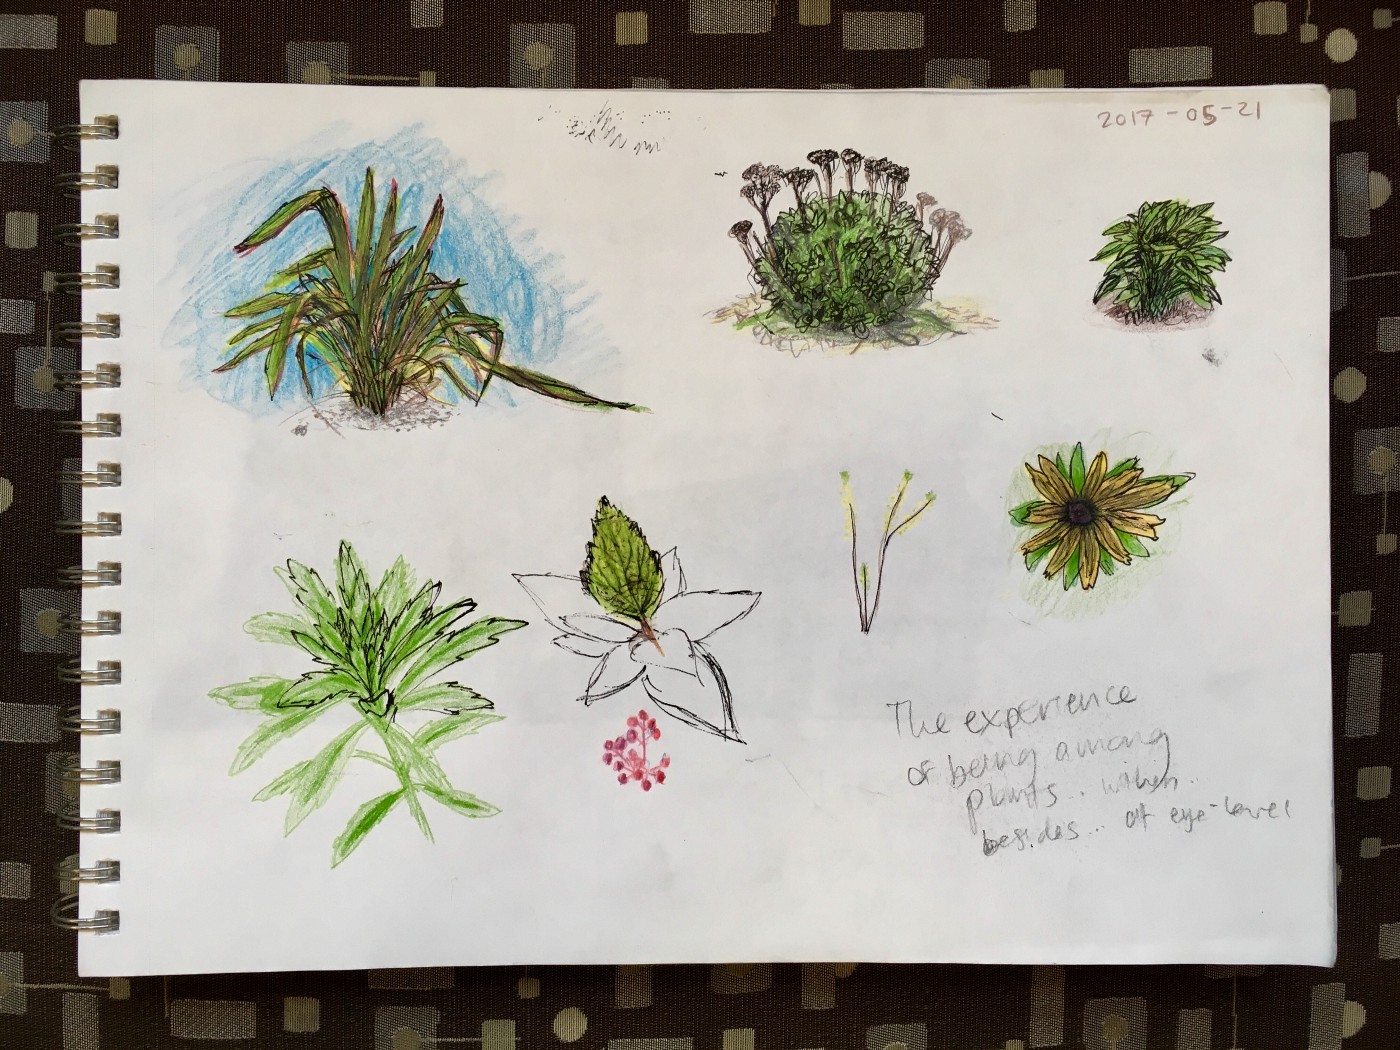 2017-05-21
The experience
of being among
plants.. within..
besides... at eye-level